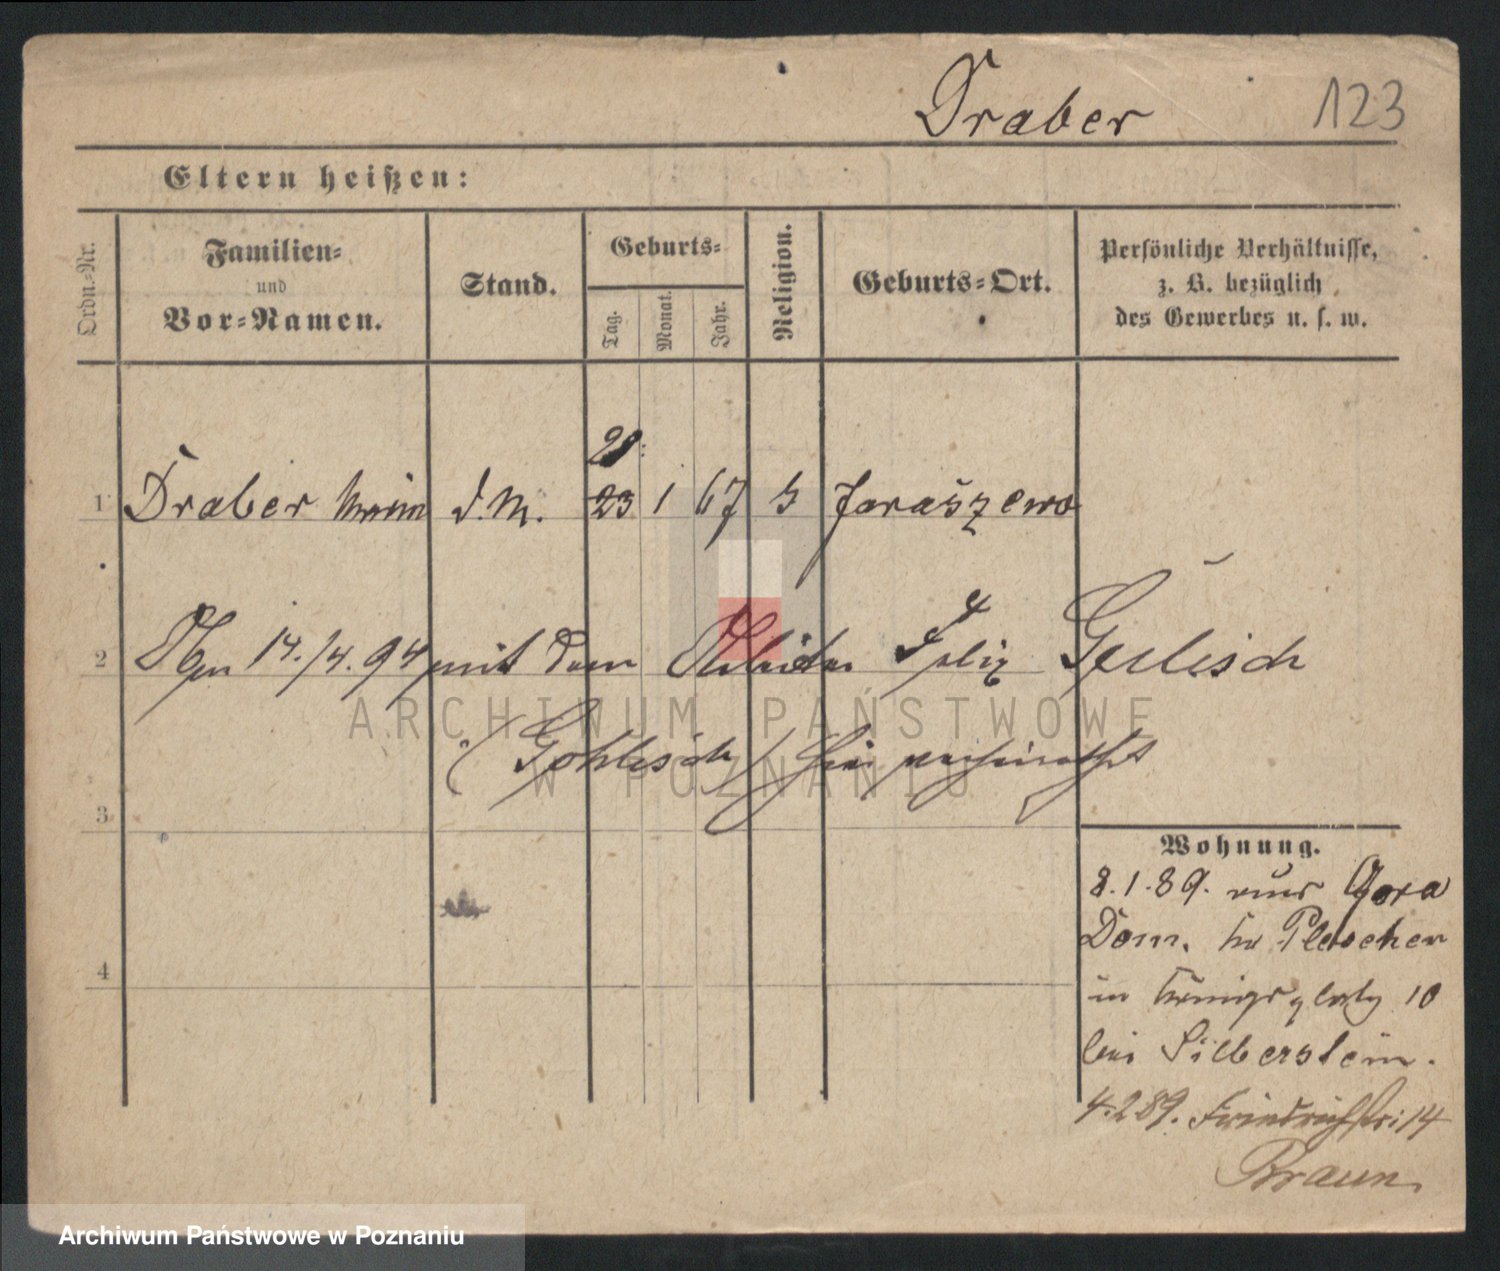 Draber 123
Eltern heißen:
Ordn.-Nr.
Familien-
und
Vor-Namen.
Stand.
Geburts-
Tag.
Monat.
Jahr.
Religion.
Geburts-Ort.
Persönliche Verhältnisse,
z. B. bezüglich
des Gewerbes u. s. w.
1 Draber d. M. 23 1 67 Jaraszewo
2 Am 14./4. 94 mit dem Arbeiter Felix Gulisch
(Gohlisch) hier verheirathet
3
4
Wohnung.
8.1.89. aus Gora
Dom. Kr Pleschen
in Königsplatz 10
bei Silberstein.
4.2 89. Friedrichstr: 14
Braun.
ARCHIWUM PAŃSTWOWE
W POZNANIU
Archiwum Państwowe w Poznaniu